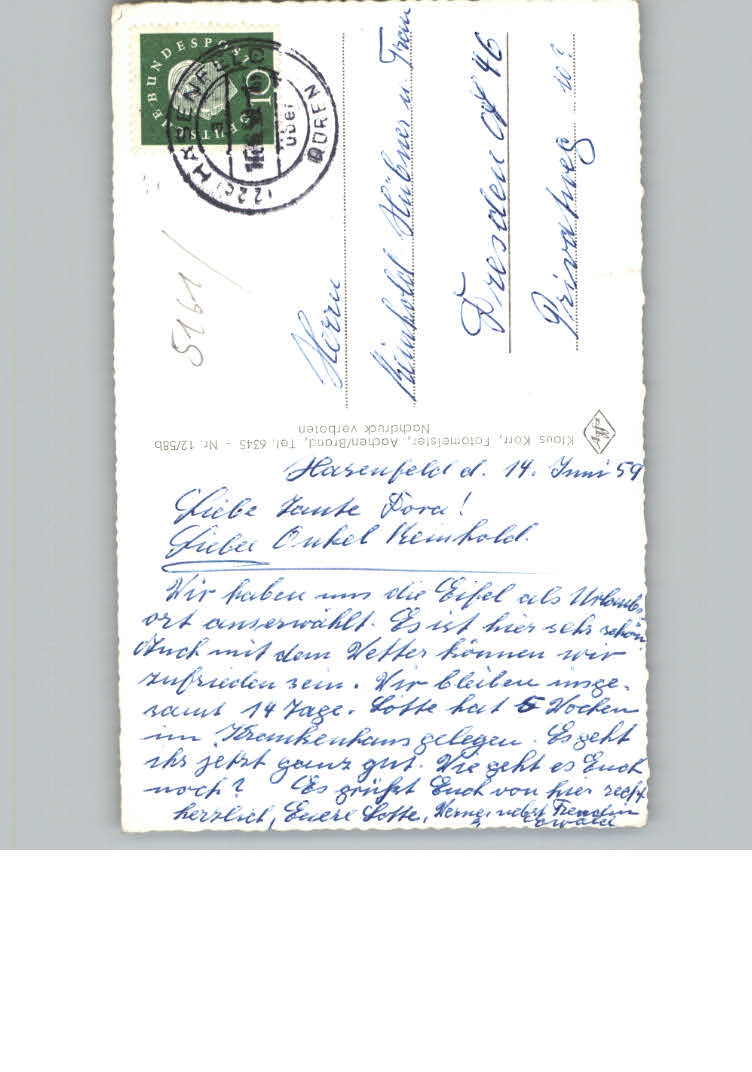 DEUTSCHE BUNDESPOST
10
(22c) HASENFELD
über
DÜREN
5161/
Herrn
Reinhold Hübner u. Frau
Dresden A 46
Privatweg 10?
Klaus Korr, Fotomeister, Aachen/Brand, Tel. 6345 - Nr. 12/58b
Nachdruck verboten
Hasenfeld d. 14. Juni 59
Liebe Tante Dora!
Lieber Onkel Reinhold.
Wir haben uns die Eifel als Urlaubs-
ort auserwählt. Es ist hier sehr schön
Auch mit dem Wetter können wir
zufrieden sein. Wir bleiben insge-
samt 14 Tage. Lotte hat 5 Wochen
im Krankenhaus gelegen. Es geht
ihr jetzt ganz gut. Wie geht es Euch
noch? Es grüßt Euch von hier recht
herzlich, Euere Lotte, Werner nebst Freundin